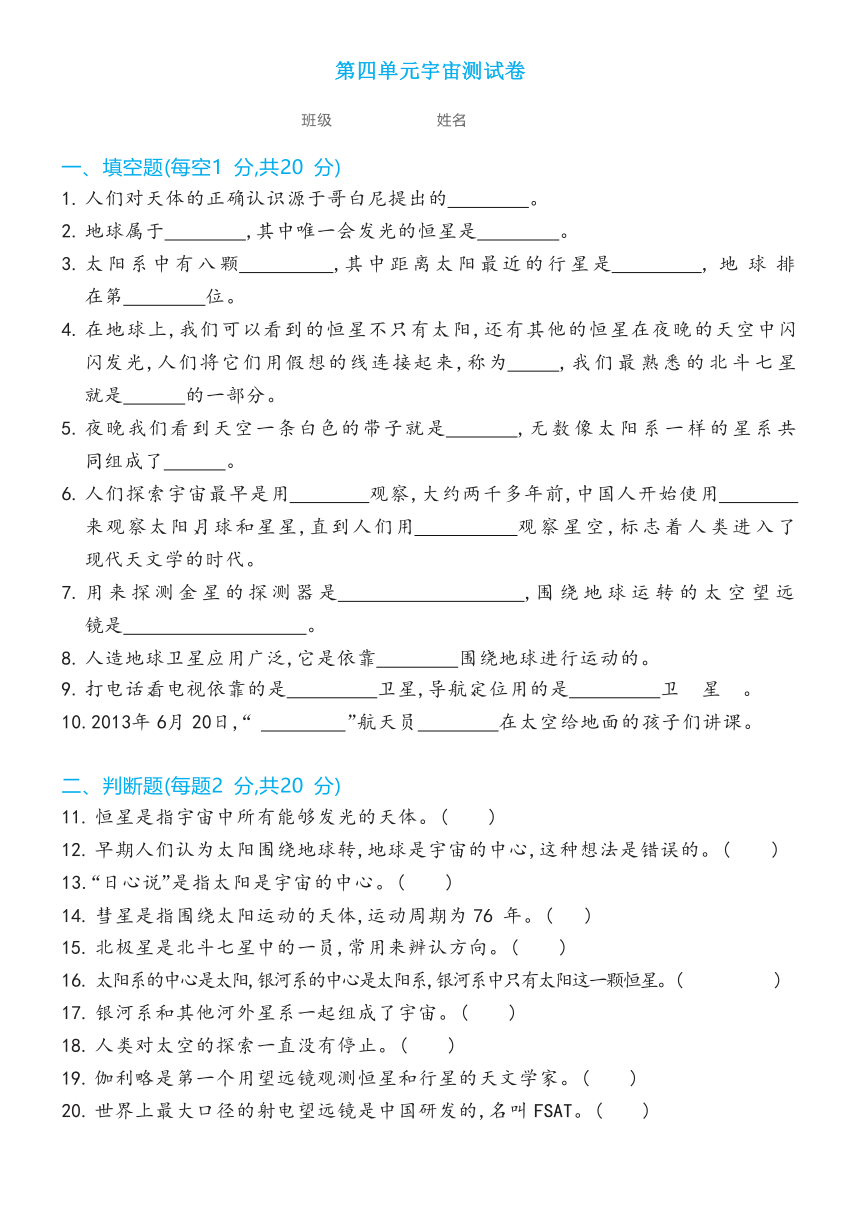 第四单元宇宙测试卷
班级 姓名
一、填空题(每空1 分,共20 分)
1. 人们对天体的正确认识源于哥白尼提出的________。
2. 地球属于________,其中唯一会发光的恒星是________。
3. 太阳系中有八颗_________,其中距离太阳最近的行星是_________,地球排
在第________位。
4. 在地球上,我们可以看到的恒星不只有太阳,还有其他的恒星在夜晚的天空中闪
闪发光,人们将它们用假想的线连接起来,称为_____,我们最熟悉的北斗七星
就是______的一部分。
5. 夜晚我们看到天空一条白色的带子就是_______,无数像太阳系一样的星系共
同组成了______。
6. 人们探索宇宙最早是用________观察,大约两千多年前,中国人开始使用________
来观察太阳月球和星星,直到人们用__________观察星空,标志着人类进入了
现代天文学的时代。
7. 用来探测金星的探测器是__________________,围绕地球运转的太空望远
镜是__________________。
8. 人造地球卫星应用广泛,它是依靠________围绕地球进行运动的。
9. 打电话看电视依靠的是_________卫星,导航定位用的是_________卫 星 。
10. 2013年6月20日,“ ________”航天员________在太空给地面的孩子们讲课。
二、判断题(每题2 分,共20 分)
11. 恒星是指宇宙中所有能够发光的天体。( )
12. 早期人们认为太阳围绕地球转,地球是宇宙的中心,这种想法是错误的。( )
13.“日心说”是指太阳是宇宙的中心。( )
14. 彗星是指围绕太阳运动的天体,运动周期为76 年。( )
15. 北极星是北斗七星中的一员,常用来辨认方向。( )
16. 太阳系的中心是太阳,银河系的中心是太阳系,银河系中只有太阳这一颗恒星。( )
17. 银河系和其他河外星系一起组成了宇宙。( )
18. 人类对太空的探索一直没有停止。( )
19. 伽利略是第一个用望远镜观测恒星和行星的天文学家。( )
20. 世界上最大口径的射电望远镜是中国研发的,名叫FSAT。( )